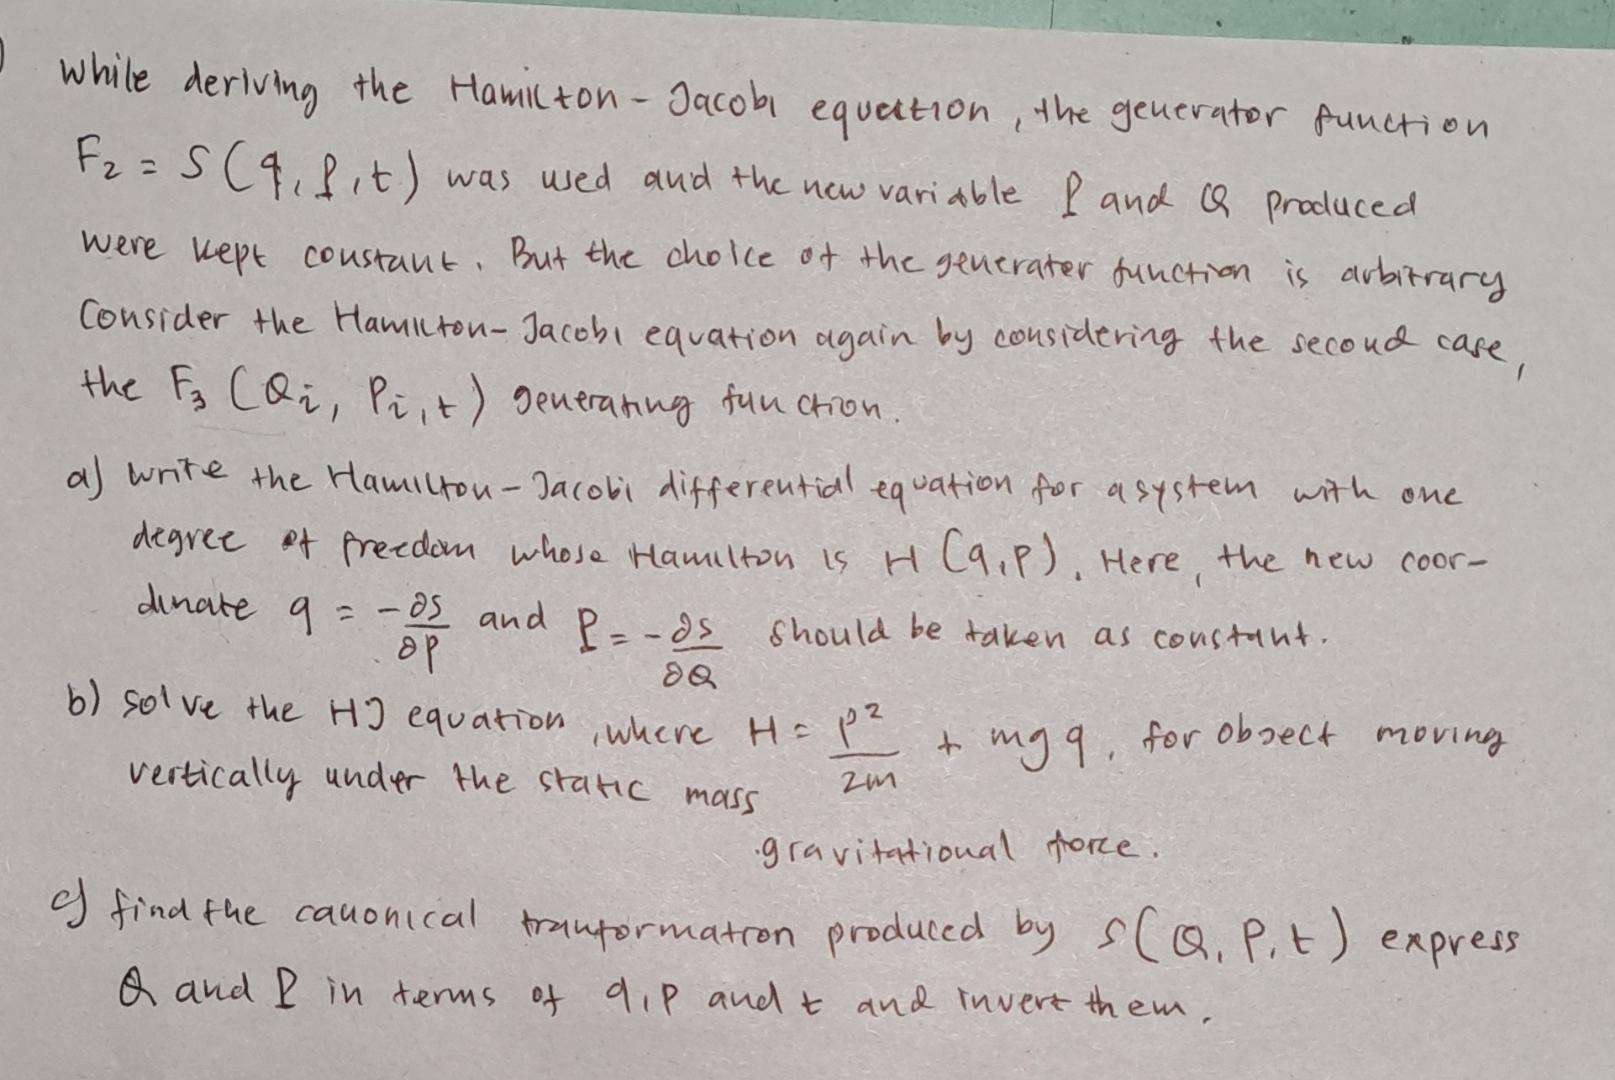 While deriving the Hamilton-Jacobi equation, the generator function
F₂ = S(q, P, t) was used and the new variable P and Q produced
were kept constant. But the choice of the generater function is arbitrary
Consider the Hamilton-Jacobi equation again by considering the second case,
the F₃ (Qi, Pi, t) generating function.
a) write the Hamilton-Jacobi differential equation for a system with one
degree of freedom whose Hamilton is H (q,p). Here, the new coor-
dinate q = -∂S/∂p and P = -∂S/∂Q should be taken as constant.
b) solve the HJ equation, where H = p²/2m + mgq, for object moving
vertically under the static mass
gravitational force.
c) find the canonical tranformation produced by S(Q, P, t) express
Q and P in terms of q, p and t and invert them.